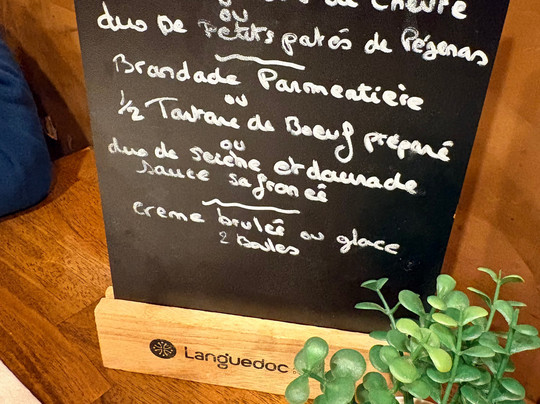 de chèvre
ou
duo De Petits patés de Pézenas
Brandade Parmentiere
ou
1/2 Tartare de Boeuf préparé
ou
duo de seiche et daurade
sauce safrané
creme brulée ou glace
2 Boules
Languedoc